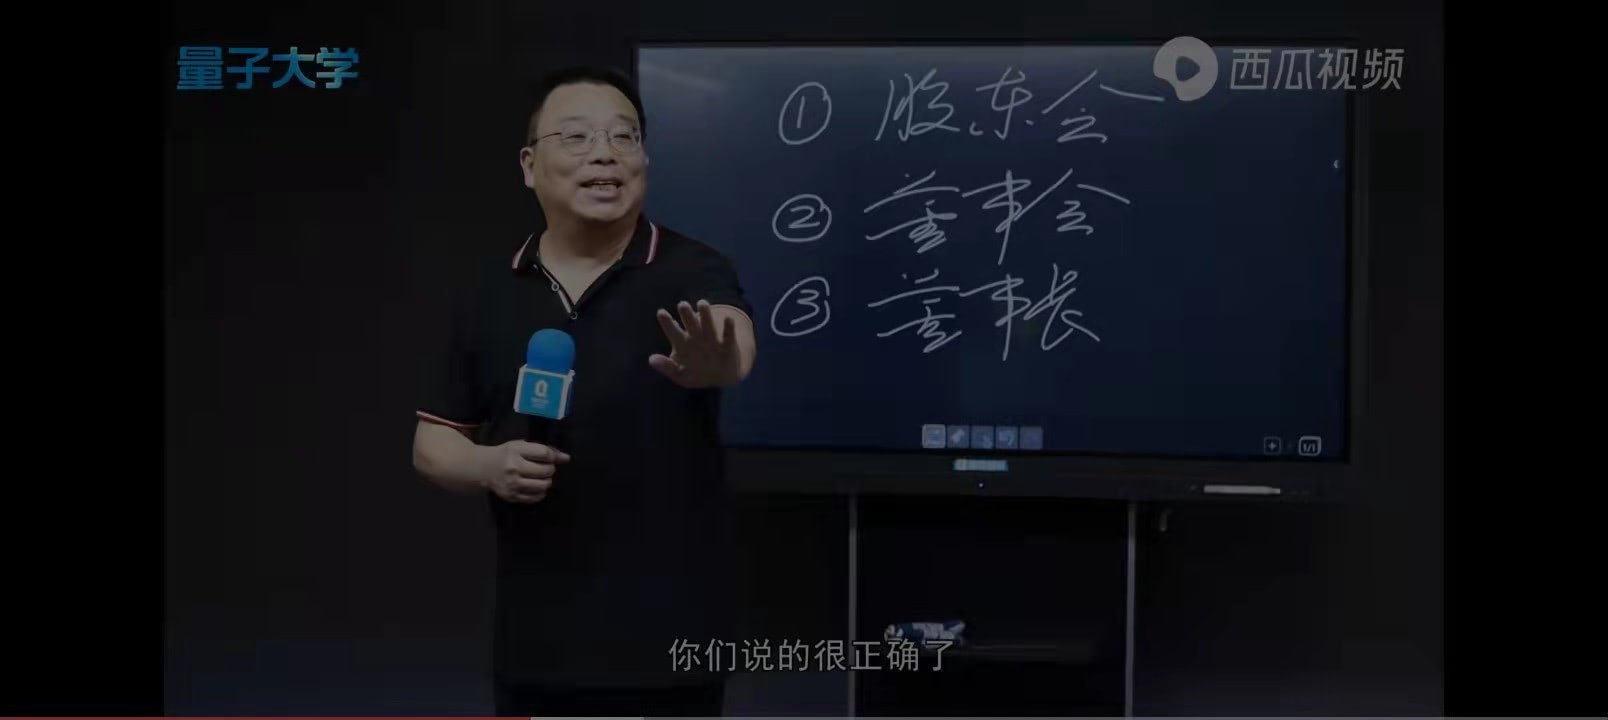 量子大学
西瓜视频
① 股东会
② 董事会
③ 董事长
1/1
你们说的很正确了